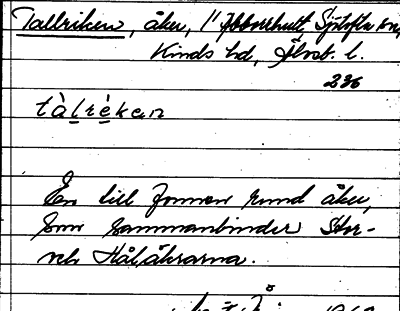 Tallriken, åker, 1/1 Ibborrhult, Sjötofta sn,
Kinds hd, Älvsb. l.
236
tàlrèkan
En till formen rund åker,
som sammanbinder Stor-
och Hålåkrarna.